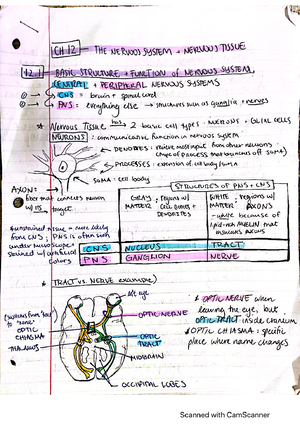 CH 12 - THE NERVOUS SYSTEM + NERVOUS TISSUE
12.1 BASIC STRUCTURE + FUNCTION OF NERVOUS SYSTEM
CENTRAL + PERIPHERAL NERVOUS SYSTEMS
① → CNS = brain + spinal cord
② → PNS = everything else → structures such as ganglia + nerves
* Nervous Tissue has 2 basic cell types: NEURONS + GLIAL CELLS
NEURONS: communicative function in nervous system
DENDRITES: receive most input from other neurons
(type of process that branches off soma)
PROCESSES: extension of cell body/soma
SOMA: cell body
AXON:
fiber that connects neuron
w/ its target
STRUCTURES OF PNS + CNS
GRAY MATTER: regions w/ cell bodies + DENDRITES
WHITE MATTER: regions w/ AXONS
- white because of lipid-rich MYELIN that insulates axons
* unstained tissue = more likely
from CNS; PNS is often seen
under microscope +
stained w/ artificial
colors
CNS NUCLEUS TRACT
PNS GANGLION NERVE
* TRACT vs NERVE example)
eye
OPTIC NERVE
OPTIC CHIASMA
THALAMUS
OPTIC TRACT
MIDBRAIN
OCCIPITAL LOBES
* OPTIC NERVE when
leaving the eye, but
OPTIC TRACT inside cranium
OPTIC CHIASMA: specific
place where name changes
Scanned with CamScanner